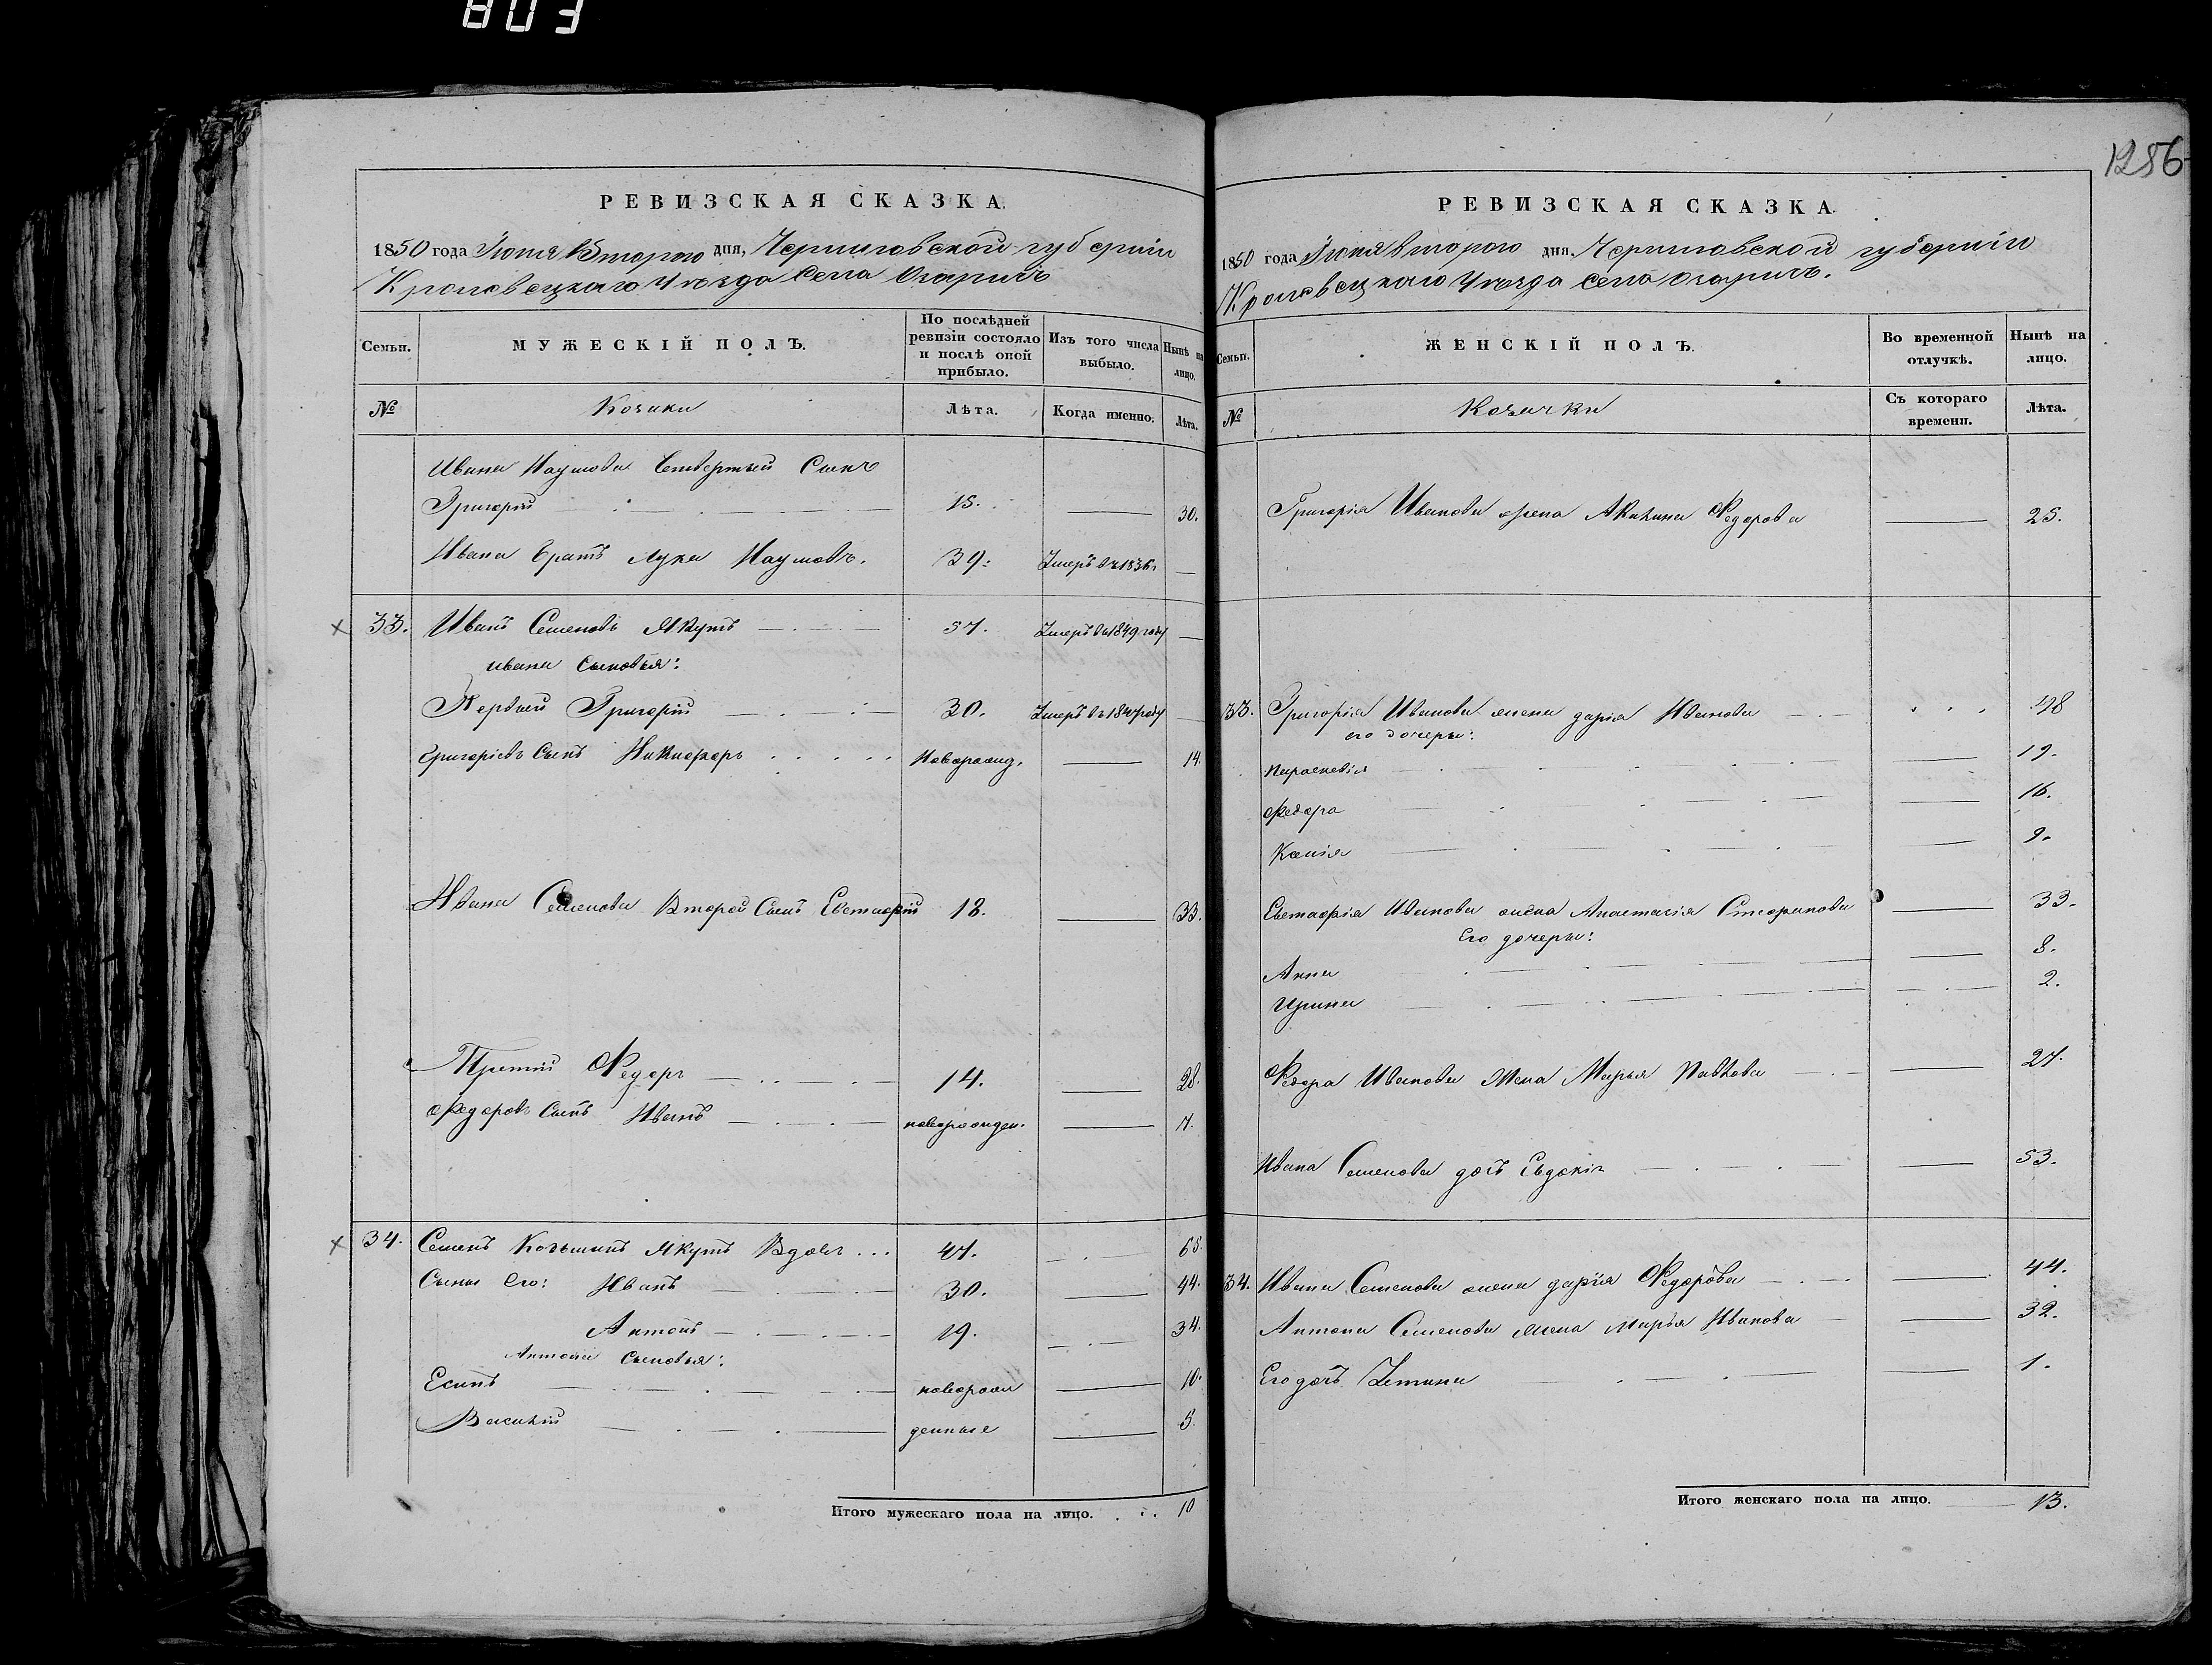 803
1286
РЕВИЗСКАЯ СКАЗКА.
1850 года Июня Второго дня, Черниговской губернии
Кролевецкаго Уезда Села Огаричъ
Семьи.
МУЖЕСКІЙ ПОЛЪ.
По послѣдней ревизіи состояло и послѣ оной прибыло.
Изъ того числа выбыло.
Нынѣ на лицо.
№
Козаки
Лѣта.
Когда именно.
Лѣта.
Ивана Наумова Четвертый Сынъ
Григорій 15. 30.
Ивана братъ Лука Наумовъ. 39. Умеръ въ 1836г
33. Иванъ Семеновъ Якутъ 57. Умеръ въ 1849 году
Ивана Сыновья:
Первый Григорій 30. Умеръ въ 1847 году
Григоріевъ Сынъ Никифоръ новорожд. 14.
Ивана Семенова Второй Сынъ Евстафій 18. 33.
Третій Федоръ 14. 28.
Федоровъ Сынъ Иванъ новорожден. 7.
34. Семенъ Козьминъ Якутъ Вдовъ 47. 65.
Сыны Его: Иванъ 30. 44.
Антонъ 19. 34.
Антона Сыновья:
Есипъ новорож 10.
Василій денные 5.
Итого мужескаго пола на лицо. 10
РЕВИЗСКАЯ СКАЗКА.
1850 года Июня Второго дня, Черниговской губерніи
Кролевецкаго Уезда Села Огаричъ.
Семьи.
ЖЕНСКІЙ ПОЛЪ.
Во временной отлучкѣ.
Нынѣ на лицо.
№
Козачки
Съ котораго времени.
Лѣта.
Григорія Иванова жена Акилина Федорова 25.
33. Григорія Иванова жена Дарія Иванова 48
его дочери:
Параскевія 19.
Федора 16.
Ксенія 9.
Евстафія Иванова жена Анастасія Стефанова 33.
Его дочери:
Анна 8.
Ирина 2.
Федора Иванова жена Марья Павлова 27.
Ивана Семенова дочь Евдокія 53.
34. Ивана Семенова жена Дарія Федорова 44.
Антона Семенова жена Марья Иванова 32.
Его дочь Устина 1.
Итого женскаго пола на лицо. 13.